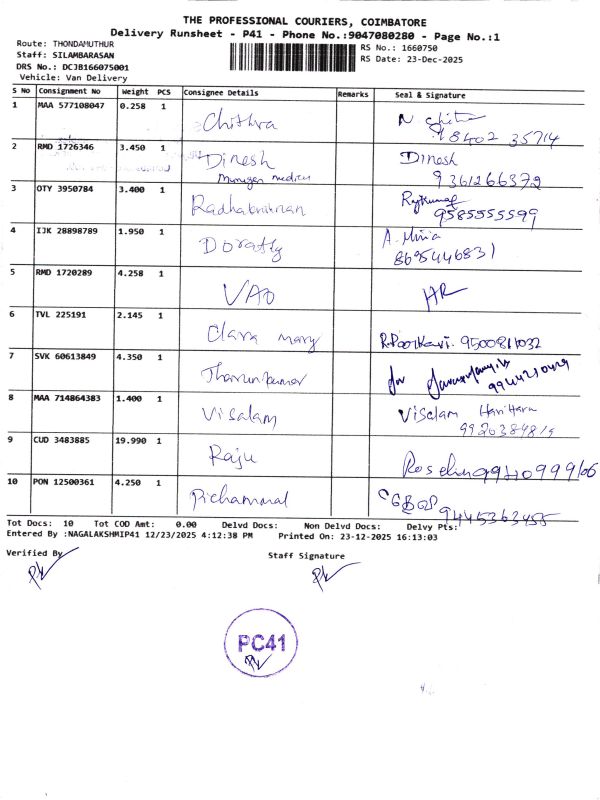 THE PROFESSIONAL COURIERS, COIMBATORE
Delivery Runsheet - P41 - Phone No.:9047080280 - Page No.:1
Route: THONDAMUTHUR
Staff: SILAMBARASAN
DRS No.: DCJB166075001
Vehicle: Van Delivery
RS No.: 1660750
RS Date: 23-Dec-2025
S No Consignment No Weight PCS Consignee Details Remarks Seal & Signature
1 MAA 577108047 0.258 1 Chithra
2 RMD 1726346 3.450 1 Dinesh Dinesh
9361266372
3 OTY 3950784 3.400 1 Radhakrishnan Rajkumar
9585555599
4 IJK 28898789 1.950 1 Dorathy A. Miria
8695446831
5 RMD 1720289 4.258 1 VAO HR
6 TVL 225191 2.145 1 Clara mary R.Poorkavi. 9500811032
7 SVK 60613849 4.350 1 Tharunkumar for
9944210429
8 MAA 714864383 1.400 1 Visalam Visalam Harihara
9 CUD 3483885 19.990 1 Raju
10 PON 12500361 4.250 1 Pichammal
Tot Docs: 10 Tot COD Amt: 0.00 Delvd Docs: Non Delvd Docs: Delvy Pts:
Entered By :NAGALAKSHMIP41 12/23/2025 4:12:38 PM Printed On: 23-12-2025 16:13:03
Verified By Staff Signature
PC41